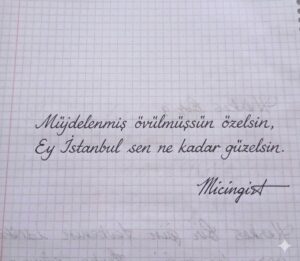 Müjdelenmiş övülmüşsün özelsin,
Ey İstanbul sen ne kadar güzelsin.
Micingirt